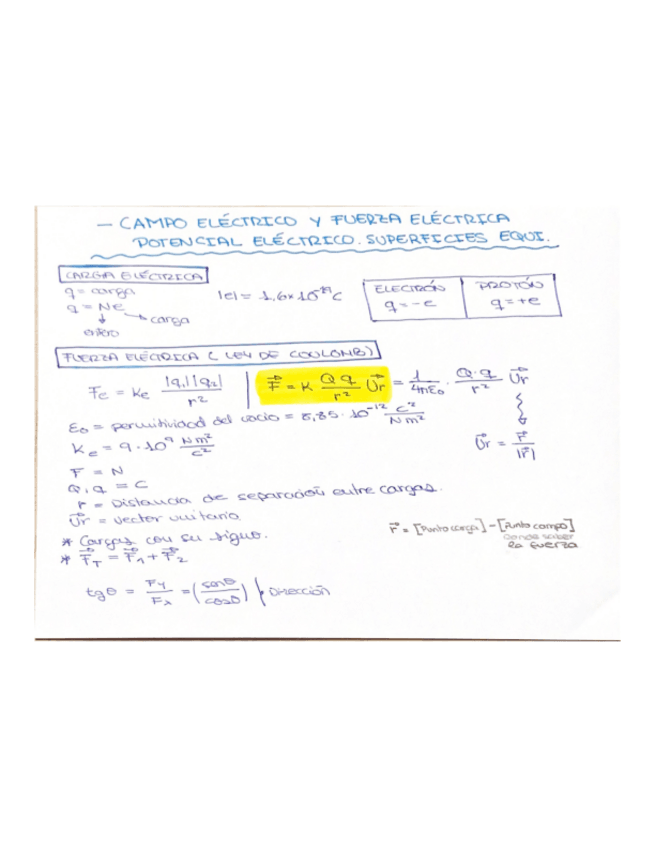 — CAMPO ELÉCTRICO Y FUERZA ELÉCTRICA
POTENCIAL ELÉCTRICO. SUPERFICIES EQUI.
CARGA ELÉCTRICA
q = carga
q = Ne
↓ → carga
entero
|e| = 1,6×10⁻¹⁹ C
ELECTRÓN q = -e
PROTÓN q = +e
FUERZA ELÉCTRICA (LEY DE COULOMB)
Fe = Ke |q₁||q₂| / r² | F⃗ = K Q q / r² U⃗r = 1 / 4πε₀ · Q·q / r² U⃗r
ε₀ = permitividad del vacío = 8,85·10⁻¹² C² / N m²
Ke = 9·10⁹ N m² / C²
U⃗r = r⃗ / |r⃗|
F = N
Q, q = C
r = Distancia de separación entre cargas.
U⃗r = vector unitario
* Cargas con su signo.
* F⃗T = F⃗₁ + F⃗₂
r⃗ = [Punto carga] - [Punto campo]
Donde saber
la fuerza
tgθ = Fy / Fx = (senθ / cosθ) Dirección